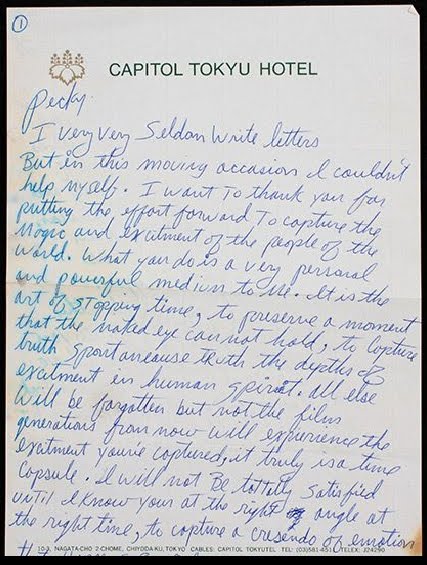 1
CAPITOL TOKYU HOTEL
Pecky.
I very very Seldom Write letters
But in this moving occasion I couldn't
help myself. I want To thank you for
putting the effort forward To capture the
Magic and excitment of the people of the
world. What you do is a very personal
and powerful medium to me. It is the
art of stopping time, to preserve a moment
that the naked eye can not hold, to capture
truth spontaneouse truth the depths of
excitment in human spirit. All else
will be forgotten but not the film
generations from now will experience the
excitment you're captured, it truly is a time
capsule. I will not Be totally satisfied
until I know your at the right angle at
the right time, to capture a crusendo of emotion
10-3, NAGATA-CHO 2-CHOME, CHIYODA-KU, TOKYO CABLES: CAPITOL TOKYUTEL TEL: (03)581-4511 TELEX: J24290